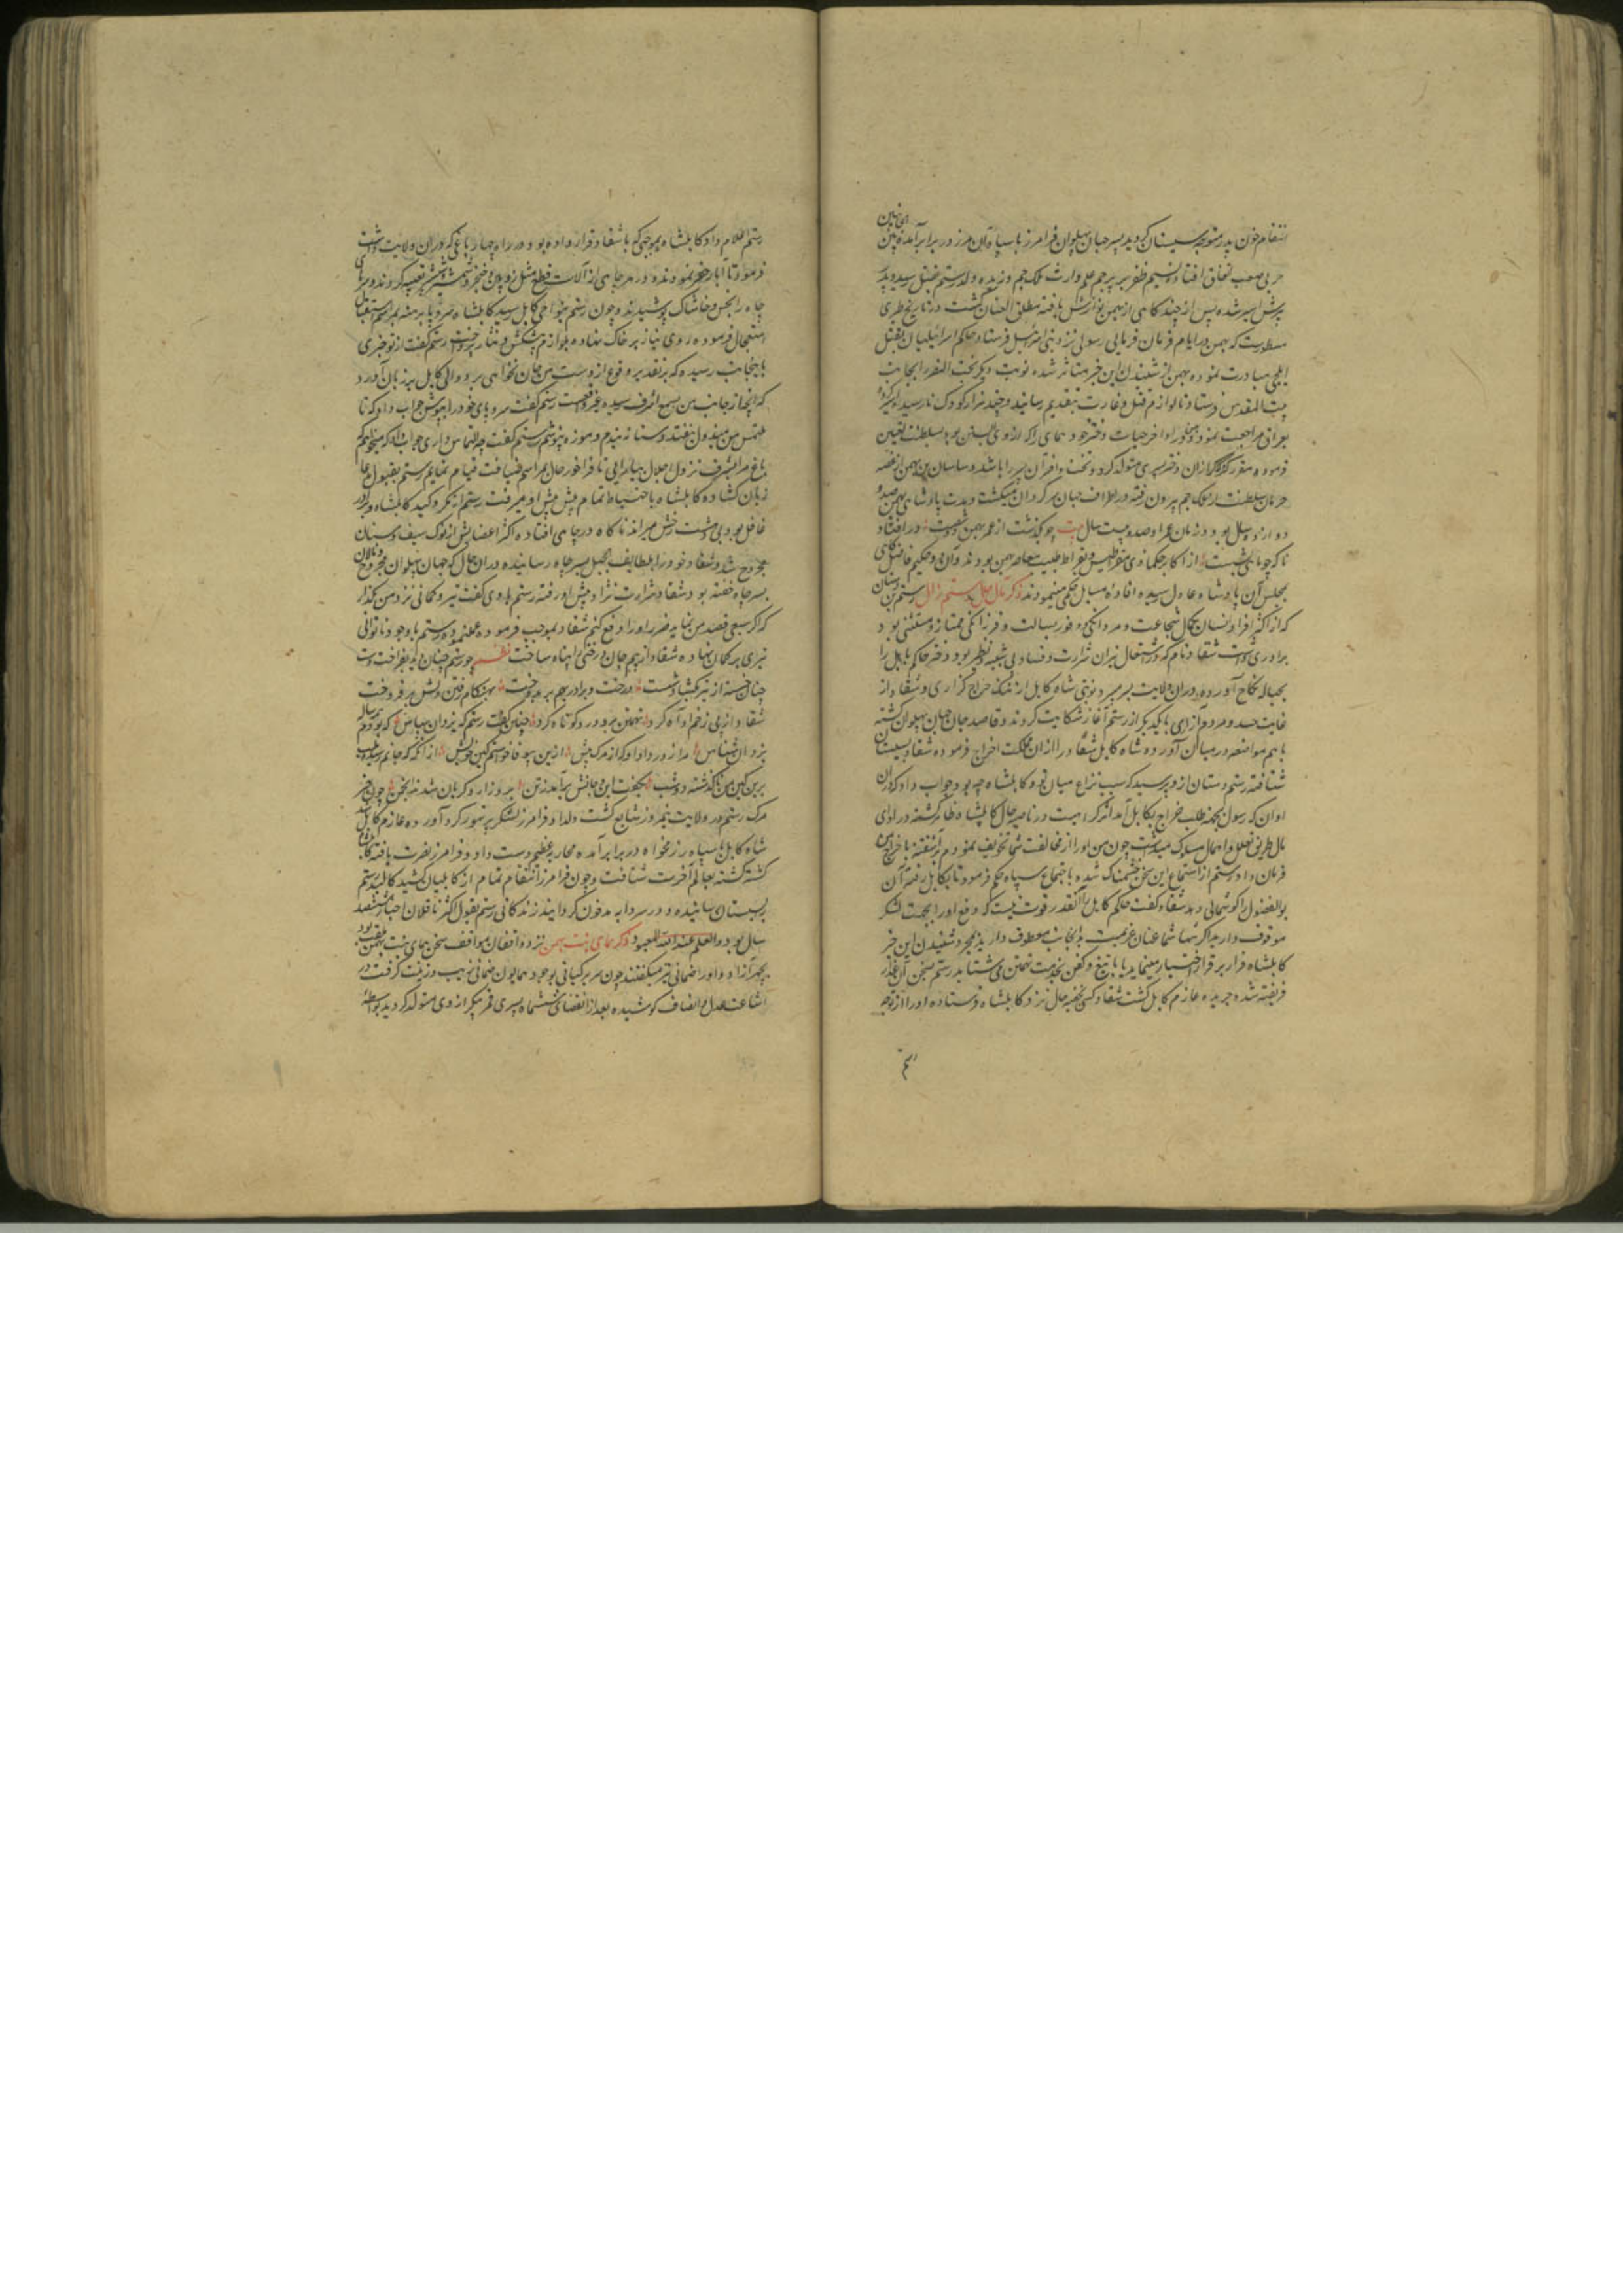 انتقام خون پدر متوجه سیستان کردید پسر جهان پهلوان فرامرز با سپاه آن مرز در برابر آمده
حربی صعب اتفاق افتاد و نسیم ظفر بر پرچم علم وارث ملک جم وزیده ولد رستم بقتل رسید و پدر
پیرش اسیر شده پس از چندگاهی از بهمن نوازش یافته مطلق العنان کشت و در تاریخ طبری
مسطورست که بهمن در ایام فرمان فرمایی رسولی نزد بنی اسرائیل فرستاد و حاکم اسرائیلیان بقتل
ایلچی مبادرت نموده بهمن از شنیدن این خبر متاثر شده نوبت دیکر بخت النصر را بجانب
بیت المقدس فرستاد تا لوازم قتل و غارت بتقدیم رسانید و چند هزار کودک نارسیده اسیر کرده
بعراق مراجعت نمود و بهمن در اواخر حیات دختر خود همای را که از وی آبستن بود بسلطنت تعیین
فرموده مقرر کرد که اگر از آن دختر پسری متولد کردد تخت و افسر از آن پسر باشد و ساسان بن بهمن از غصه
حرمان سلطنت از ملک جم بیرون رفته در اطراف جهان سرکردان میکشت و مدت پادشاهی بهمن صد و
دوازده سال بود و زمان عمر او صد و بیست سال بیت چو بگذشت از عمر بهمن شصت در افتاد
ناکه چو ماهی بشست از اکابر حکما ذی مقراطیس و بقراط طبیب معاصر بهمن بودند و آن دو حکیم فاضل کاهی
بمجلس آن پادشاه عادل رسیده افاده مسایل حکمی مینمودند ذکر مآل حال رستم زال رستم بن دستان
که از اکثر افراد انسان بکمال شجاعت و مردانکی و وفور بسالت و فرزانکی ممتاز و مستثنی بود
برادری داشت شغاد نام که در اشتعال نیران شرارت و فساد بی شبیه و نظیر بود و دختر حاکم کابل را
بحباله نکاح آورده در آن ولایت بسر میبرد نوبتی شاه کابل از ننک خراج گزاری و شغاد از
غایت حسد و مردم آزاری با یکدیکر از رستم آغاز شکایت کردند و قاصد جان جهان پهلوان کشته
با هم مواضعه در میان آورده شاه کابل شغاد را از آن مملکت اخراج فرموده شغاد بسیستان
شتافته رستم دستان ازو پرسید که سبب نزاع میان تو و کابلشاه چه بود جواب داد که در آن
اوان که رسول بجهة طلب خراج بکابل آمد اثر کراهیت در ناصیه حال کابلشاه ظاهر کشته در ادای
مال طریق تعلل و اهمال مسلوک میداشت چون من او را از مخالفت شما تخویف نمودم آشفته باخراج من
فرمان داد رستم از استماع این سخن خشمناک شده باجتماع سپاه حکم فرمود تا بکابل رفته آن
بوالفضول را کوشمالی دهد شغاد کفت حاکم کابل را آنقدر قوت نیست که دفع او را بجهت لشکر
موقوف دارید اکر تنها شما عنان عزیمت بدانجانب معطوف دارید بمجرد شنیدن این خبر
کابلشاه فرار بر قرار اختیار مینماید یا با تیغ و کفن بخدمت تهمتن می شتابد رستم بسخن آن غدار
فریفته شده جریده عازم کابل کشت شغاد کسی خفیه حال نزد کابلشاه فرستاده او را از توجه
رستم
رستم اعلام داد کابلشاه بموجبی که با شغاد قرار داده بود در راه چهار باغی که در آن ولایت داشت
فرمود تا آبار حفر نمودند و در هر چاهی از آلات قطع مثل زوبین و خنجر و شمشیر تعبیه کردند و سرهای
چاه را بخس و خاشاک پوشیدند و چون رستم بنواحی کابل رسید کابلشاه سر و پا برهنه بمراسم استقبال
استعجال فرموده روی نیاز بر خاک نهاده بلوازم پیشکش و نثار پرداخت رستم کفت از تو خبری
باینجانب رسیده که بر تقدیر وقوع از دست من جان نخواهی برد والی کابل بر زبان آورد
که آنچه از جانب من بسمع اشرف رسیده غیر واقعست رستم کفت سر و پای خود را بپوش جواب داد که تا
ملتمس من مبذول نیفتد دستار نبندم و موزه نپوشم رستم کفت چه التماس داری جواب داد که میخواهم که
باغ مرا بشرف نزول اجلال بیارایی تا فراخور حال بمراسم ضیافت قیام نمایم رستم بقبول مدعا
زبان کشاده کابلشاه باحتیاط تمام پیش پیش او میرفت رستم از مکر و کید کابلشاه و برادر
غافل بود بی دهشت رخش میراند ناکاه در چاهی افتاده اکثر اعضایش از نوک سیف و سنان
مجروح شد و شغاد خود را بلطایف الحیل بسر چاه رسانیده در آن حال که جهان پهلوان مجروح و نالان
بسر چاه خفته بود شغاد شرارت نژاد پیش او رفته رستم با وی کفت تیر و کمانی نزد من بکذار
که اکر سبعی قصد من نماید ضرر او را دفع کنم شغاد بموجب فرموده عمل نموده رستم با وجود ناتوانی
تیری بر کمان نهاده شغاد از بیم جان درختی را پناه ساخت نظم چو رستم چنان دید بفراخت دست
چنان خسته از تیر بکشاد شست درخت و برادر بهم بر بدوخت بهنکام رفتن دلش بر فروخت
شغاد از پی زخم او آه کرد تهمتن برو درد کوتاه کرد چنین کفت رستم که یزدان سپاس که بودم همه ساله
یزدان شناس مرا زور داد او که از مرک پیش ازین بیوفا خواستم کین خویش از آنکه که جانم رسیده بلب
برین کین من ناکذشته دو شب بکفت این و جانش برآمد ز تن برو زار و کریان شدند انجمن چون خبر
مرک رستم در ولایت نیمروز شایع کشت ولد او فرامرز لشکر پر تهور کرد آورده عازم کابل شد
شاه کابل با سپاه رزمخواه در برابر آمده محاربه عظیم دست داد و فرامرز نصرت یافته
کشته کشته بعالم آخرت شتافت و چون فرامرز انتقام تمام از کابلیان کشید کالبد رستم
بسیستان رسانیده و در سردابه مدفون کردانید زندکانی رستم بقول اکثر ناقلان اخبار ششصد
سال بود والعلم عند الله المعبود ذکر همای بنت بهمن نزد واقفان مواقف سخن همای بنت بهمن ملقب بود
بچهرآزاد و او را خمانی نیز میکفتند چون سریر کیانی بوجود همایون خمانی زیب و زینت کرفت در
اشاعت عدل و انصاف کوشیده بعد از انقضای ششماه پسری قمر پیکر از وی متولد کردید بواسطه